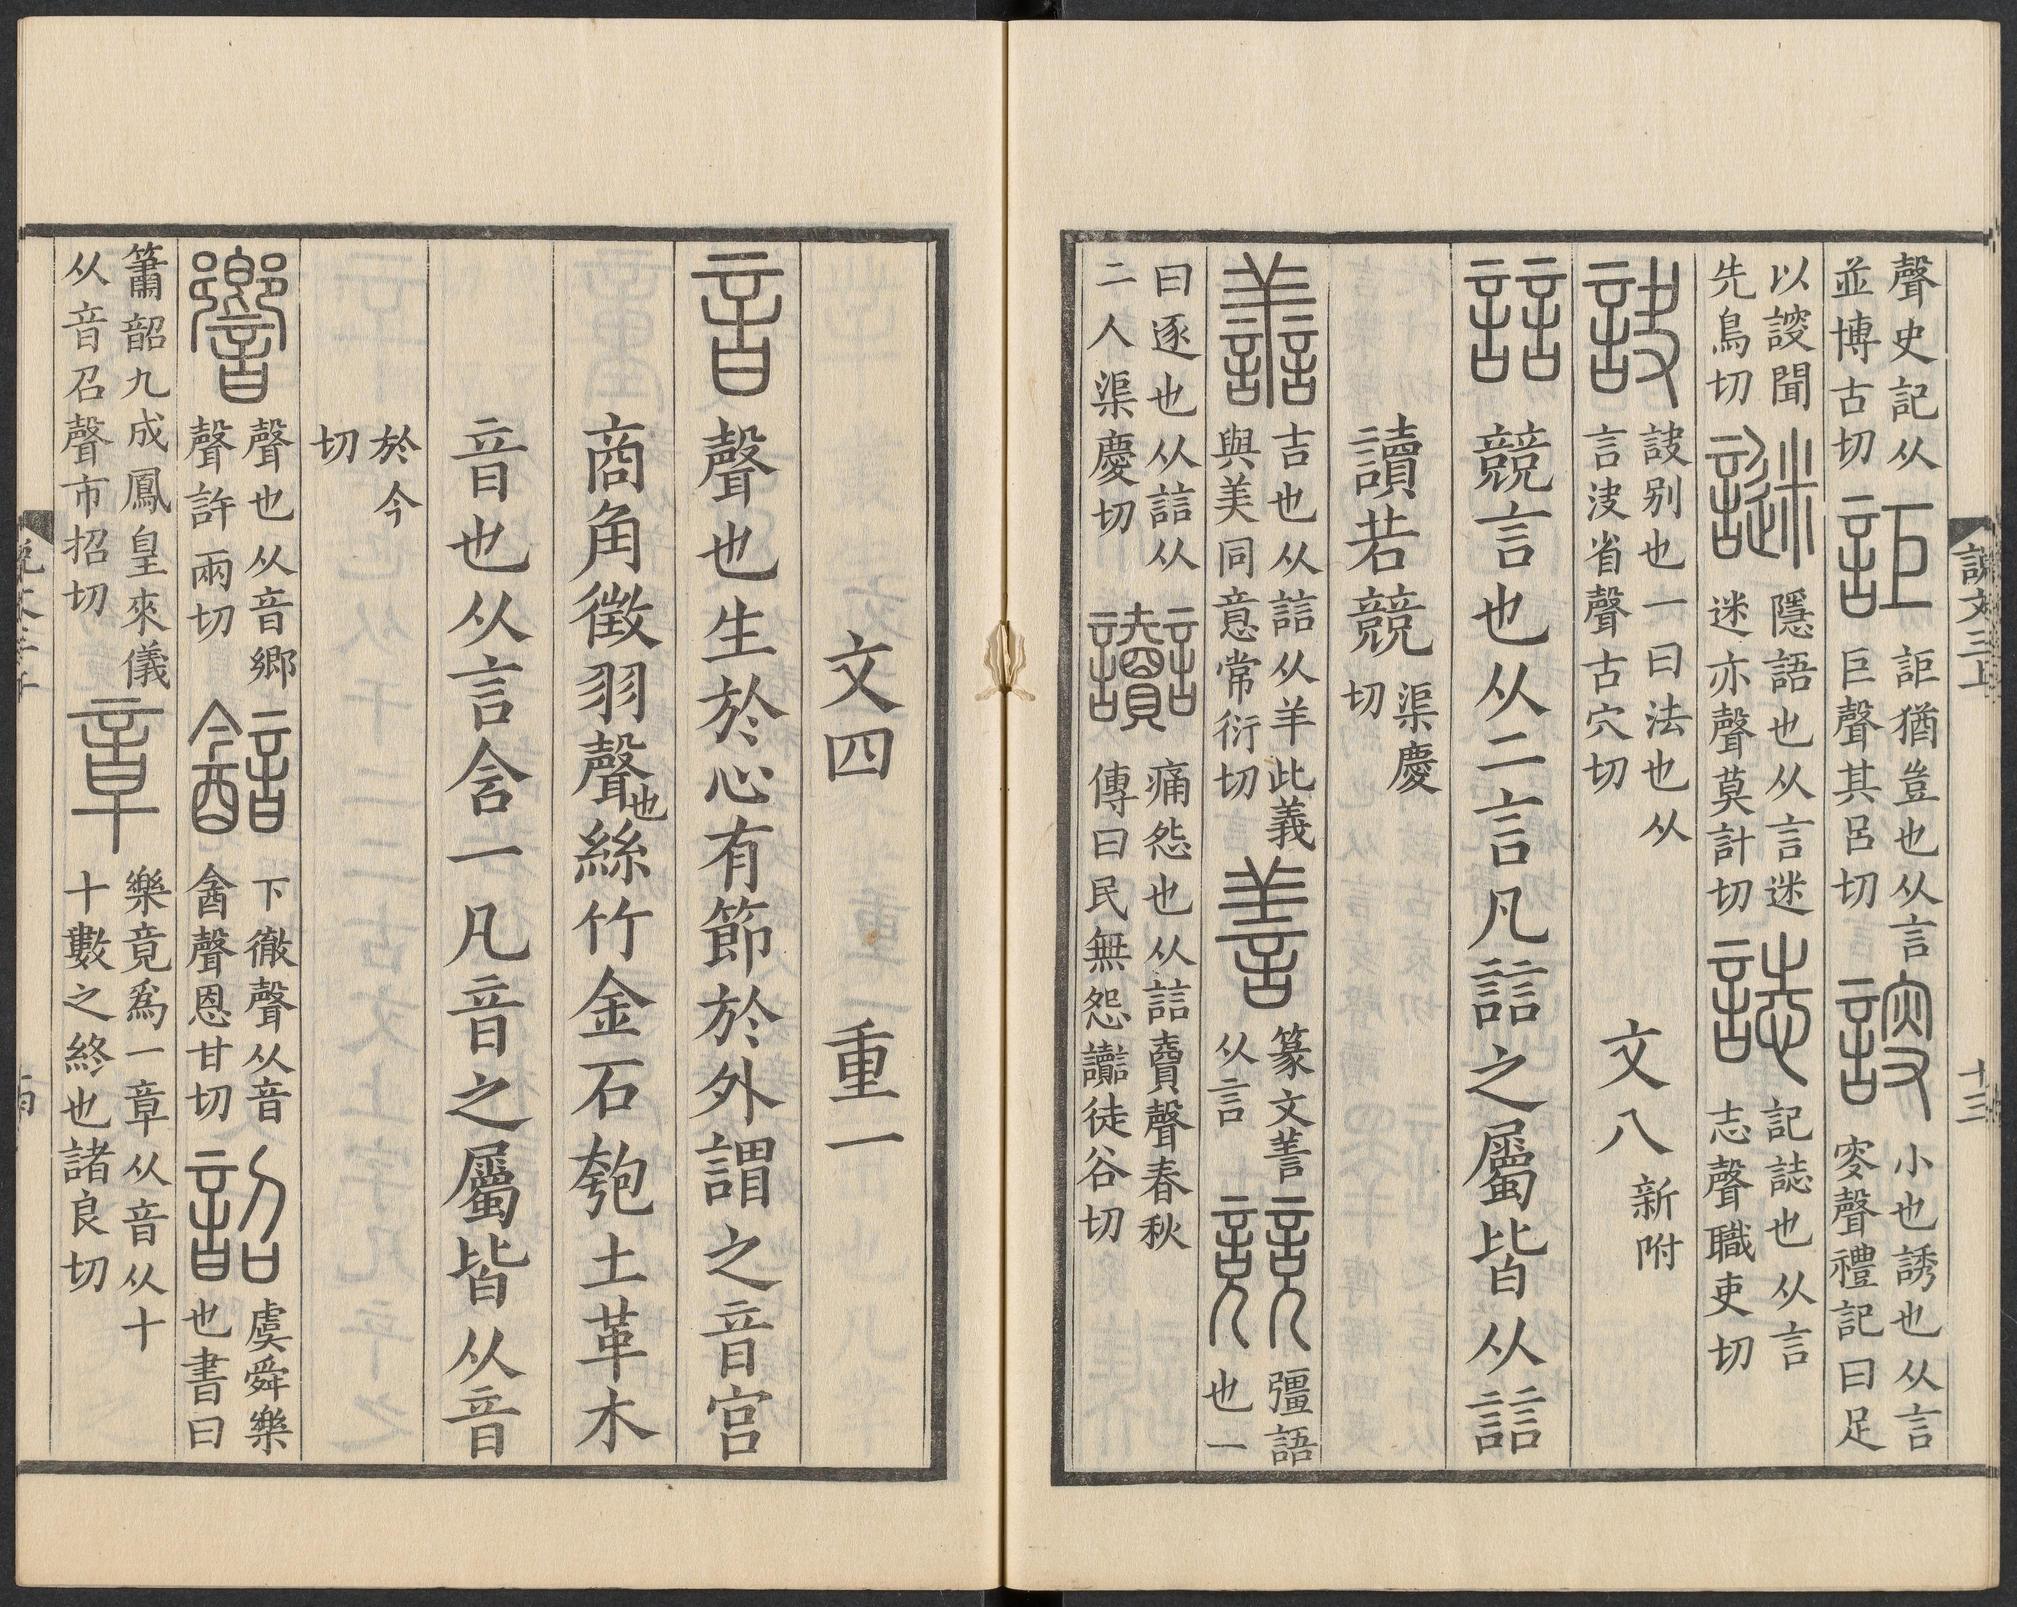 說文三上 十三
聲史記从並博古切 詎 詎猶豈也从言巨聲其呂切 謏 小也誘也从言叜聲禮記曰足
以謏聞先鳥切 謎 隱語也从言迷迷亦聲莫計切 誌 記誌也从言志聲職吏切
訣 訣别也一曰法也从言決省聲古穴切 文八 新附
誩 競言也从二言凡誩之屬皆从誩
讀若競 渠慶切
譱 吉也从誩从羊此義與美同意常衍切 善 篆文譱从言 競 彊語也一
曰逐也从誩从二人渠慶切 讟 痛怨也从誩𧶠聲春秋傳曰民無怨讟徒谷切
文四 重一
音 聲也生於心有節於外謂之音宫
商角徵羽聲也絲竹金石匏土革木
音也从言含一凡音之屬皆从音
於今切
響 聲也从音鄉聲許兩切 韽 下徹聲从音酓聲恩甘切 韶 虞舜樂也書曰
簫韶九成鳳皇來儀从音召聲市招切 章 樂竟爲一章从音从十十數之終也諸良切